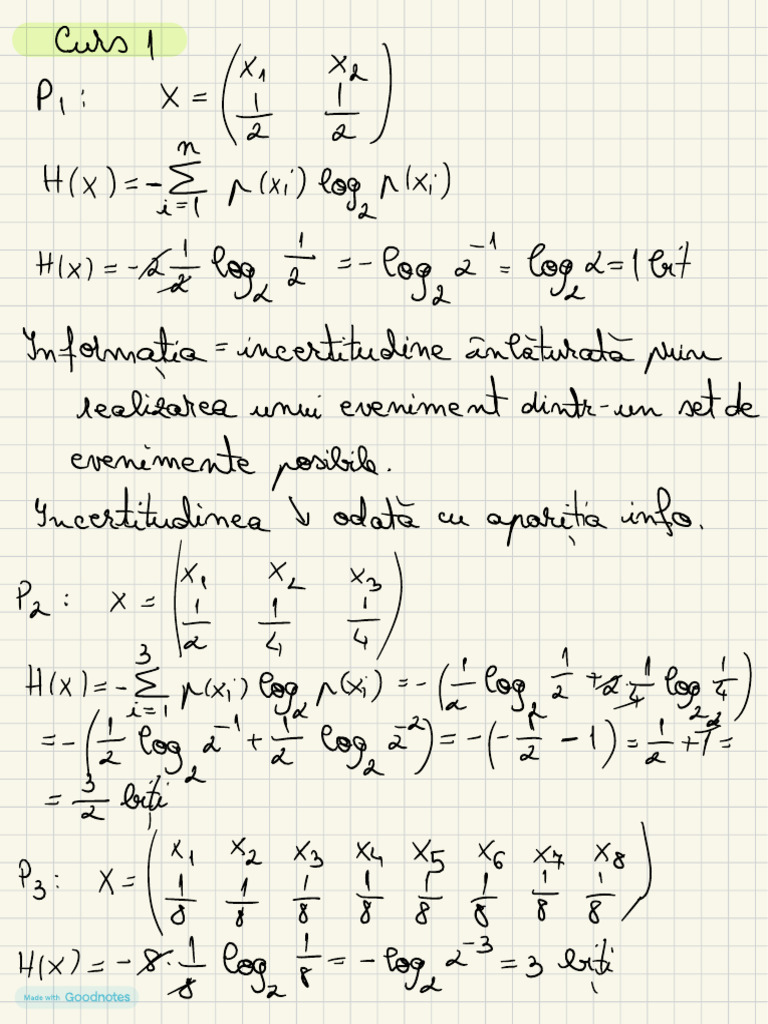 Curs 1
P₁: X = (x₁ x₂
1/2 1/2)
H(x) = -∑ᵢ₌₁ⁿ p(xᵢ) log₂ p(xᵢ)
H(x) = -2 1/2 log₂ 1/2 = -log₂ 2⁻¹ = log₂ 2 = 1 bit
Informația = incertitudine înlăturată prin
realizarea unui eveniment dintr-un set de
evenimente posibile.
Incertitudinea ↓ odată cu apariția info.
P₂: X = (x₁ x₂ x₃
1/2 1/4 1/4)
H(x) = -∑ᵢ₌₁³ p(xᵢ) log₂ p(xᵢ) = -(1/2 log₂ 1/2 + 2 1/4 log₂ 1/4)
= -(1/2 log₂ 2⁻¹ + 1/2 log₂ 2⁻²) = -(-1/2 - 1) = 1/2 + 1 =
= 3/2 biți
P₃: X = (x₁ x₂ x₃ x₄ x₅ x₆ x₇ x₈
1/8 1/8 1/8 1/8 1/8 1/8 1/8 1/8)
H(x) = -8·1/8 log₂ 1/8 = -log₂ 2⁻³ = 3 biți
Made with Goodnotes